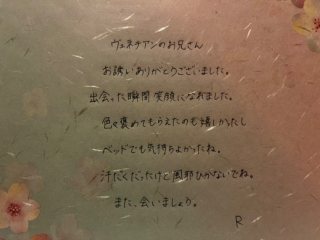 ヴェネチアンのお兄さん
お誘いありがとうございました。
出会った瞬間笑顔になれました。
色々褒めてもらえたのも嬉しかったし
ベッドでも気持ちよかったね。
汗だくだったけど風邪ひかないでね。
また、会いましょう。
R